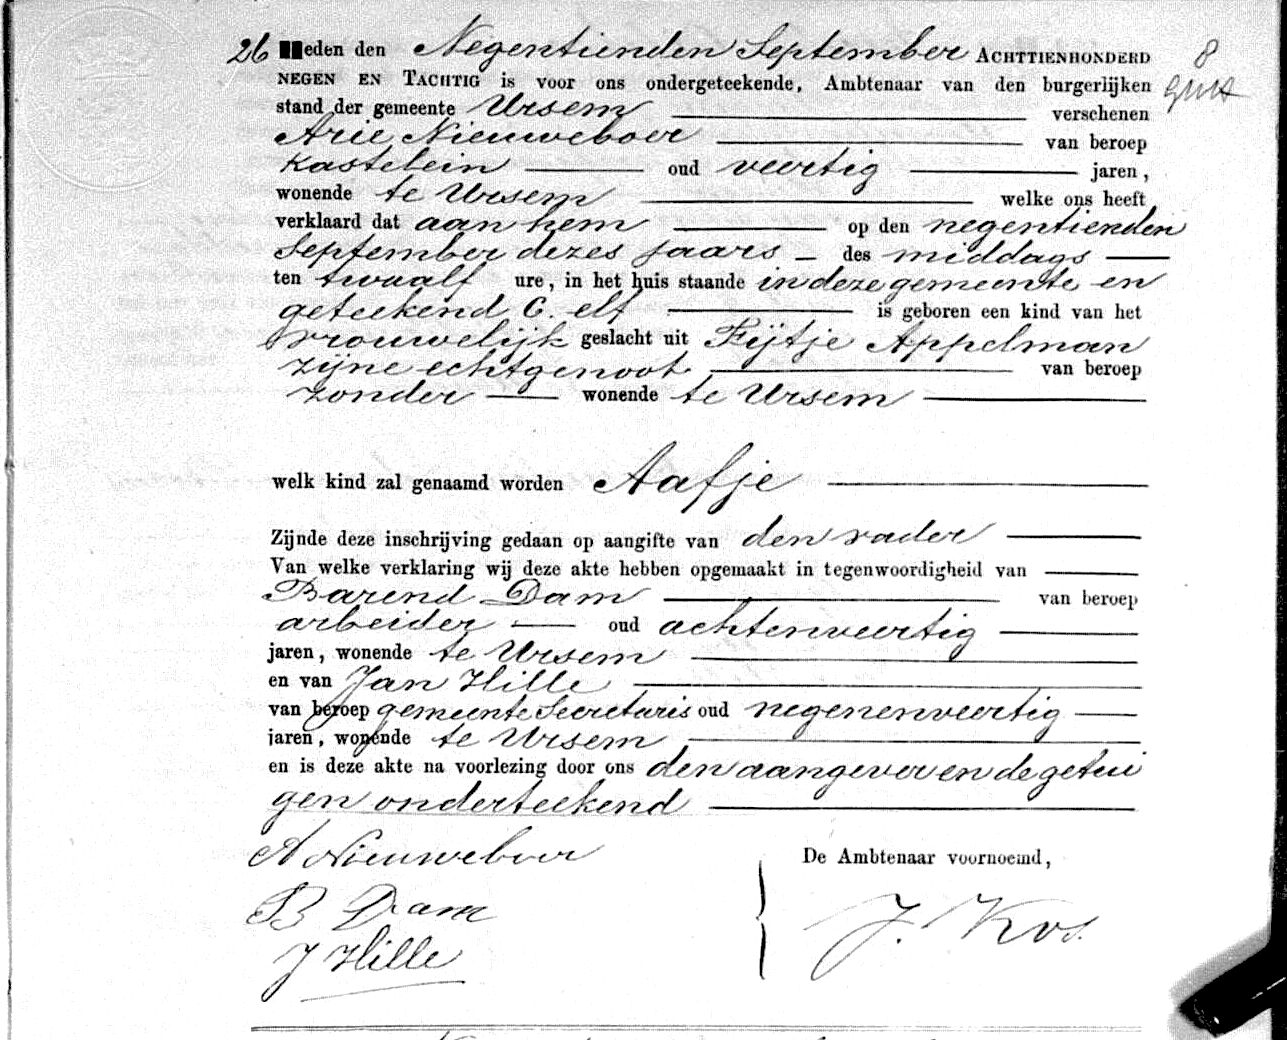 26 Heden den Negentienden September ACHTTIENHONDERD
NEGEN EN TACHTIG is voor ons ondergeteekende, Ambtenaar van den burgerlijken
stand der gemeente Ursem verschenen
Arie Nieuweboer van beroep
kastelein oud veertig jaren,
wonende te Ursem welke ons heeft
verklaard dat aan hem op den negentienden
September dezes jaars des middags
ten twaalf ure, in het huis staande in deze gemeente en
geteekend C. elf is geboren een kind van het
vrouwelijk geslacht uit Fijtje Appelman
zijne echtgenoot van beroep
zonder wonende te Ursem
welk kind zal genaamd worden Aafje
Zijnde deze inschrijving gedaan op aangifte van den vader
Van welke verklaring wij deze akte hebben opgemaakt in tegenwoordigheid van
Barend Dam van beroep
arbeider oud achtenveertig
jaren, wonende te Ursem
en van Jan Hille
van beroep gemeente Secretaris oud negenenveertig
jaren, wonende te Ursem
en is deze akte na voorlezing door ons den aangever en de getui
gen onderteekend
A Nieuweboer
De Ambtenaar voornoemd,
B Dam
J. Kos.
J Hille